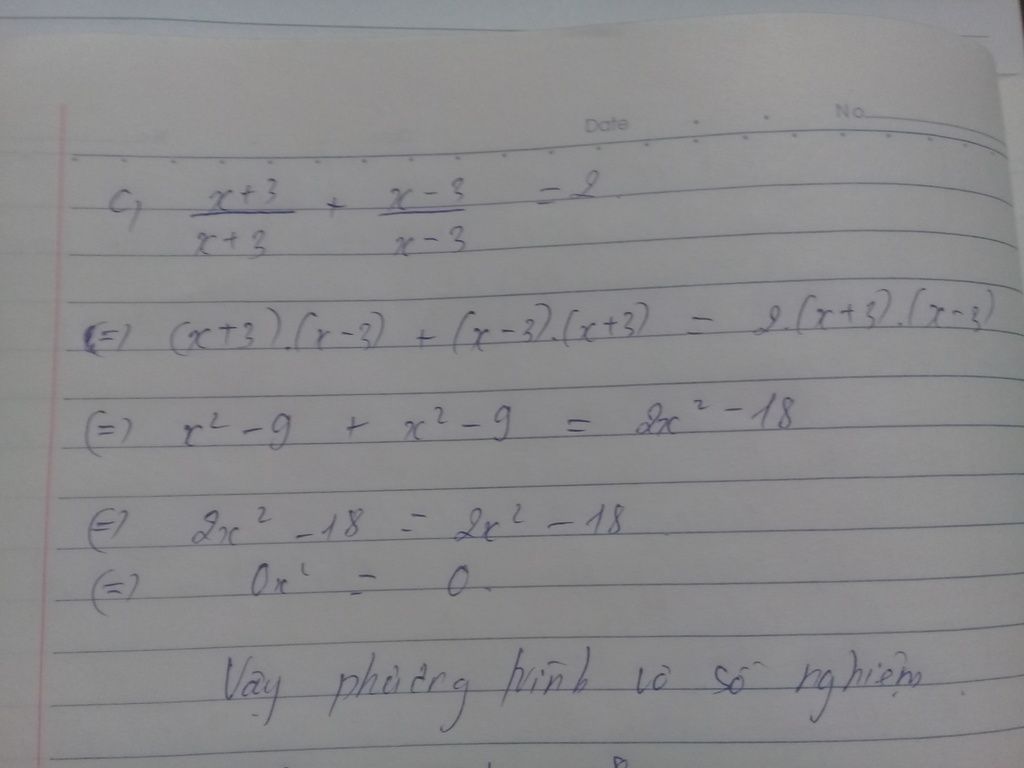 Date No.
c, x+3/x+3 + x-3/x-3 = 2
(=) (x+3).(x-3) + (x-3).(x+3) = 2.(x+3).(x-3)
(=) x² -9 + x² -9 = 2x² -18
(=) 2x² -18 = 2x² -18
(=) 0x² = 0.
Vậy phương trình vô số nghiệm.